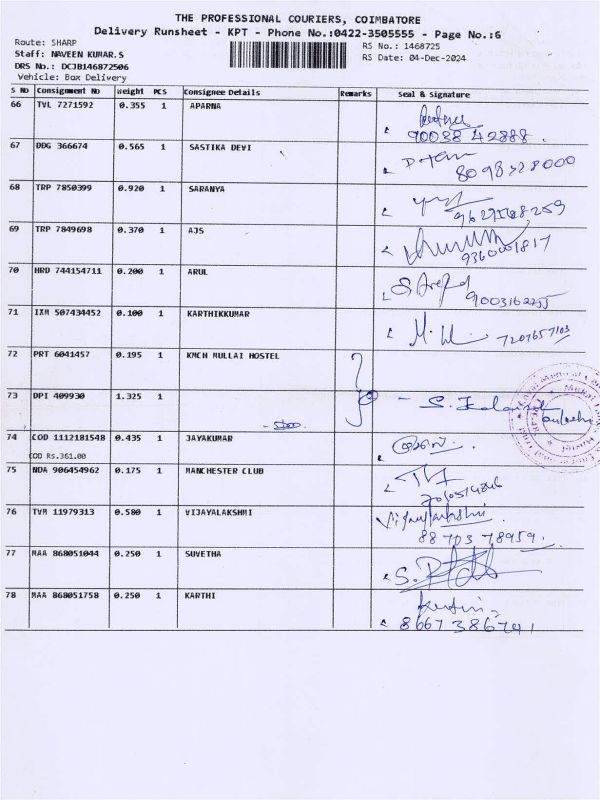 THE PROFESSIONAL COURIERS, COIMBATORE
Delivery Runsheet - KPT - Phone No.:0422-3505555 - Page No.:6
Route: SHARP
Staff: NAVEEN KUMAR.S
DRS No.: DCJB146872506
Vehicle: Box Delivery
RS No.: 1468725
RS Date: 04-Dec-2024
S No Consignment No Weight PCS Consignee Details Remarks Seal & Signature
66 TVL 7271592 0.355 1 APARNA
90038 42888
67 DDG 366674 0.565 1 SASTIKA DEVI
68 TRP 7850399 0.920 1 SARANYA
69 TRP 7849698 0.370 1 AJS
9360001817
70 HRD 744154711 0.200 1 ARUL
71 IXM 507434452 0.100 1 KARTHIKKUMAR
7207657103
72 PRT 6041457 0.195 1 KMCH MULLAI HOSTEL
73 DPI 409930 1.325 1
74 COD 1112181548 0.435 1 JAYAKUMAR
COD Rs.361.00
75 NDA 906454962 0.175 1 MANCHESTER CLUB
76 TVM 11979313 0.580 1 VIJAYALAKSHMI
Vijayalakshmi
88703 78959
77 MAA 868051044 0.250 1 SUVETHA
78 MAA 868051758 0.250 1 KARTHI
8667386741